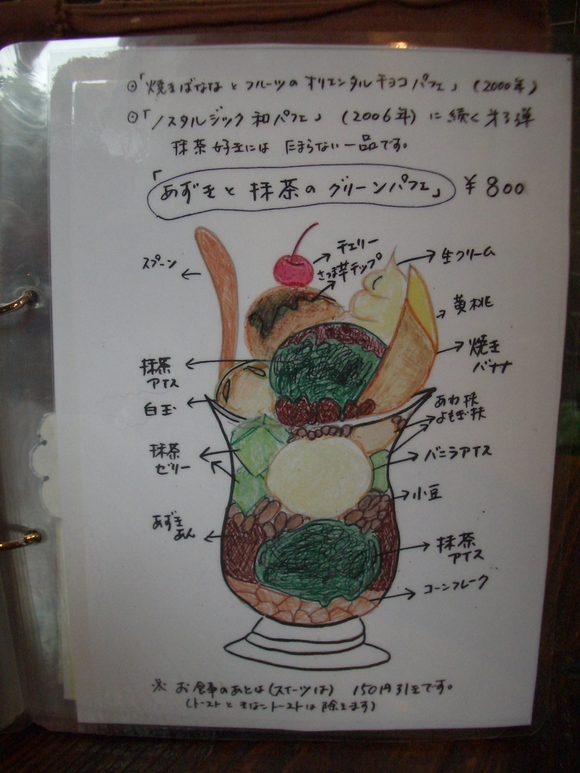 ◎「焼きばななとフルーツのオリエンタルチョコパフェ」(2000年)
◎「ノスタルジック和パフェ」(2006年)に続く第3弾
抹茶好きには たまらない一品です。
「あずきと抹茶のグリーンパフェ」 ¥800
スプーン
チェリー
さつま芋チップ
生クリーム
黄桃
焼き
バナナ
抹茶
アイス
白玉
あわ麸
よもぎ麸
抹茶
ゼリー
バニラアイス
小豆
あずき
あん
抹茶
アイス
コーンフレーク
※ お食事のあとは(スイーツは) 150円引きです。
(トーストとそばニトーストは除きます)